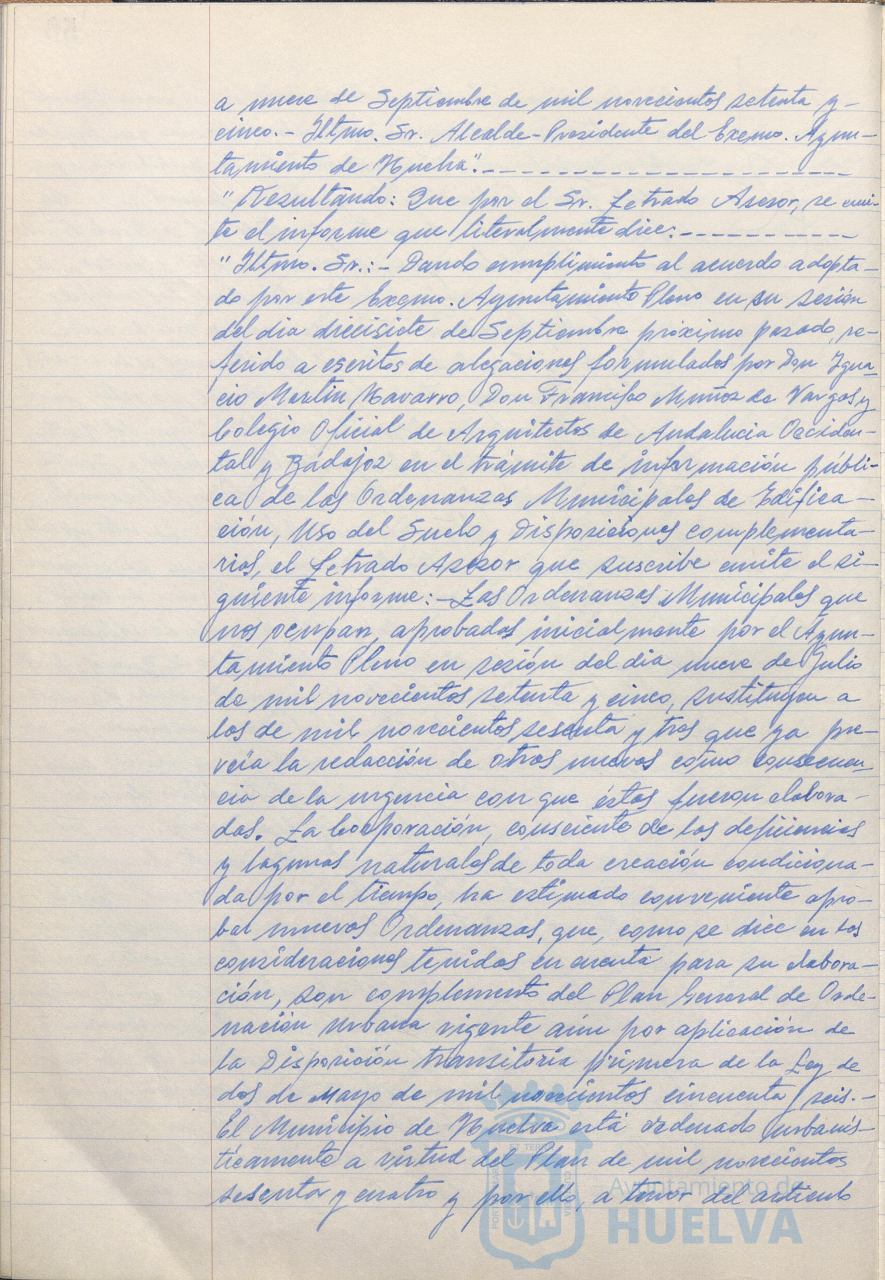 a nueve de Septiembre de mil novecientos setenta y-
cinco.- Iltmo. Sr. Alcalde-Presidente del Excmo. Ayun-
tamiento de Huelva".--------------------
"Resultando: Que por el Sr. Letrado Asesor, se emi-
te el informe que literalmente dice:----------
"Iltmo. Sr.:- Dando cumplimiento al acuerdo adopta-
do por este Excmo. Ayuntamiento Pleno en su sesión
del dia diecisiete de Septiembre próximo pasado, re-
ferido a escritos de alegaciones formulados por Don Igna-
cio Martin Navarro, Don Francisco Muñoz de Vargas y
Colegio Oficial de Arquitectos de Andalucia Occiden-
tal y Badajoz en el trámite de información públi-
ca de las Ordenanzas Municipales de Edifica-
ción, Uso del Suelo y Disposiciones complementa-
rias, el Letrado Asesor que suscribe emite el si-
guiente informe:-Las Ordenanzas Municipales que
nos ocupan, aprobadas inicialmente por el Ayun-
tamiento Pleno en sesión del dia nueve de Julio
de mil novecientos setenta y cinco, sustituyen a
las de mil novecientos sesenta y tres que ya pre-
veía la redacción de otras nuevas como consecuen-
cia de la urgencia con que éstas fueron elabora-
das. La Corporación, consciente de las deficiencias
y lagunas naturales de toda creación condiciona-
da por el tiempo, ha estimado conveniente apro-
bar nuevas Ordenanzas, que, como se dice en las
consideraciones tenidas en cuenta para su elabora-
ción, son complemento del Plan General de Orde-
nación Urbana vigente aún por aplicación de
la Disposición transitoria primera de la Ley de
dos de Mayo de mil novecientos cincuenta y seis.-
El Municipio de Huelva está ordenado urbanís-
ticamente a virtud del Plan de mil novecientos
sesenta y cuatro y por ello, a tenor del artículo
Ayuntamiento de
HUELVA